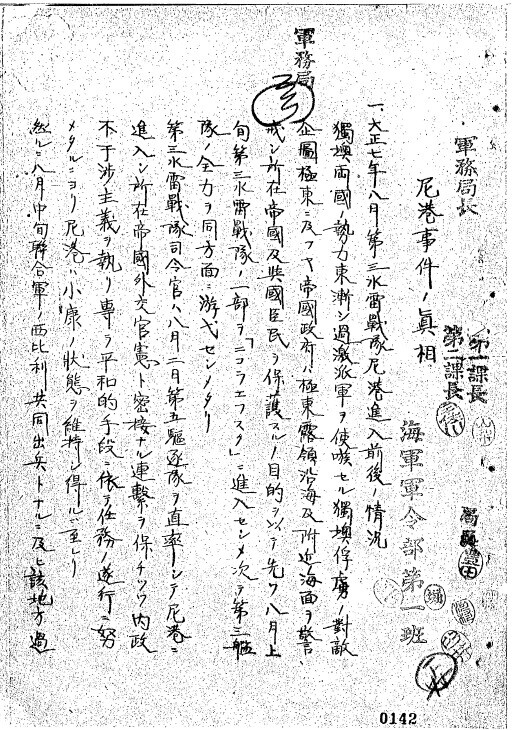 軍務局
軍務局長
第一課長
第二課長
局員
尼港事件ノ真相
海軍軍令部第一班
一、大正七年八月第三水雷戦隊尼港進入前後ノ情況
獨墺両國ノ勢力東漸シ過激派軍ヲ使嗾セル獨墺俘虜ノ對敵
企圖極東ニ及フヤ帝國政府ハ極東露領沿海及附近海面ヲ警
戒シ所在帝國及與國臣民ヲ保護スルノ目的ヲ以テ先ツ八月上
旬第三水雷戦隊ノ一部ヲ「ニコラエフスク」ニ進入セシメ次テ第三艦
隊ノ全力ヲ同方面ニ游弋セシメタリ
第三水雷戦隊司令官ハ八月二日第五駆逐隊ヲ直率シテ尼港ニ
進入シ所在帝國外交官憲ト密接ナル連繋ヲ保チツツ内政
不干渉ノ主義ヲ執リ専ラ平和的手段ニ依テ任務ノ遂行ニ努
メタルニヨリ尼港ハ小康ノ状態ヲ維持シ得ルニ至レリ
然ルニ八月中旬聯合軍ノ西比利共同出兵トナルニ及ヒ該地方過
0142